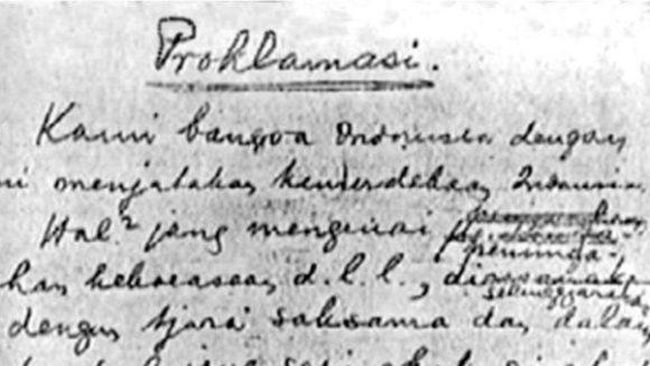 Proklamasi.
Kami bangsa Indonesia dengan
ni menjatakan kemerdekaan Indonesia
Hal² jang mengenai
peminda-
han kekoeasaan d.l.l.,
selenggarakan
dengan tjara saksama dan dalam